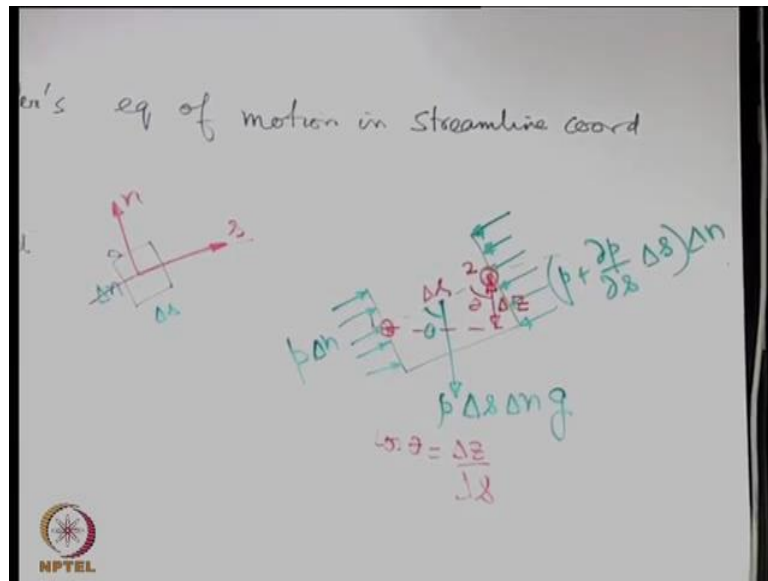 er's eq of motion in streamline coord
n
s
Δn
Δs
2
(p + ∂p/∂s Δs) Δn
Δs
θ
ΔZ
1
θ
pΔn
ρ Δs Δn g
cos θ = ΔZ/Δs
NPTEL